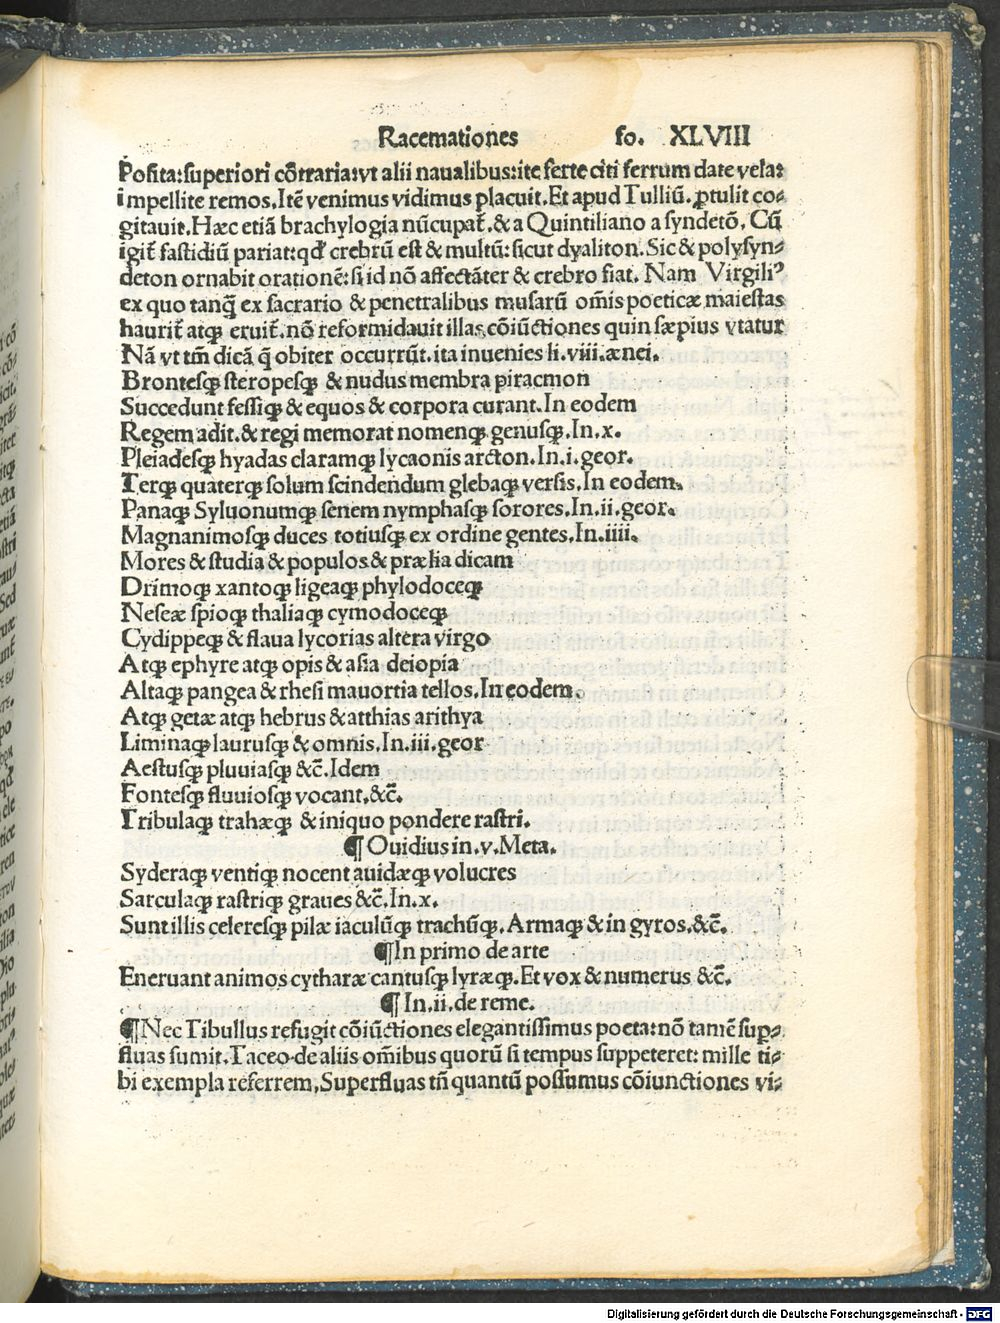 Racemationes fo. XLVIII
Posita:superiori cõtraria:vt alii naualibus:ite ferte citi ferrum date vela:
impellite remos.Itẽ venimus vidimus placuit.Et apud Tulliũ.ꝓtulit co-
gitauit.Hæc etiã brachylogia nũcupat᷑.& a Quintiliano a syndetõ. Cũ
igit᷑ fastidiũ pariat:qd' crebrũ est & multũ:sicut dyaliton.Sic & polysyn-
deton ornabit orationẽ:si id nõ affectãter & crebro fiat. Nam Virgiliꝰ
ex quo tanq̃ ex sacrario & penetralibus musarũ om̃is poeticæ maiestas
haurit᷑ atqꝫ eruit᷑.nõ reformidauit illas cõiũctiones quin sæpius vtatur
Nã vt tm̃ dicã q̃ obiter occurrũt.ita inuenies li.viii.ænei.
Brontesqꝫ steropesqꝫ & nudus membra piracmon
Succedunt fessiqꝫ & equos & corpora curant.In eodem
Regem adit.& regi memorat nomenqꝫ genusqꝫ.In.x.
Pleiadesqꝫ hyadas claramqꝫ lycaonis arcton.In.i.geor.
Terqꝫ quaterqꝫ solum scindendum glebaqꝫ versis.In eodem.
Panaqꝫ Syluonumqꝫ senem nymphasqꝫ sorores.In.ii.geor.
Magnanimosqꝫ duces totiusqꝫ ex ordine gentes.In.iiii.
Mores & studia & populos & prælia dicam
Drimoqꝫ xantoqꝫ ligeaqꝫ phylodoceqꝫ
Neseæ spioqꝫ thaliaqꝫ cymodoceqꝫ
Cydippeqꝫ & flaua lycorias altera virgo
Atqꝫ ephyre atqꝫ opis & asia deiopia
Altaqꝫ pangea & rhesi mauortia tellos.In eodem.
Atqꝫ getæ atqꝫ hebrus & atthias arithya
Liminaqꝫ laurusqꝫ & omnis.In.iii.geor
Aestusqꝫ pluuiasqꝫ &c̃.Idem
Fontesqꝫ fluuiosqꝫ vocant.&c̃.
Tribulaqꝫ trahæqꝫ & iniquo pondere rastri.
¶ Ouidius in.v.Meta.
Syderaqꝫ ventiqꝫ nocent auidæqꝫ volucres
Sarculaqꝫ rastriqꝫ graues &c̃.In.x.
Sunt illis celeresqꝫ pilæ iaculũqꝫ trachũqꝫ.Armaqꝫ & in gyros.&c̃.
¶In primo de arte
Eneruant animos cytharæ cantusqꝫ lyræqꝫ.Et vox & numerus &c̃.
¶ In.ii.de reme.
¶Nec Tibullus refugit cõiũctiones elegantissimus poeta:nõ tamẽ suꝑ-
fluas sumit.Taceo de aliis om̃ibus quorũ si tempus suppeteret: mille ti-
bi exempla referrem,Superfluas tñ quantũ possumus cõiunctiones vi-
Digitalisierung gefördert durch die Deutsche Forschungsgemeinschaft - DFG